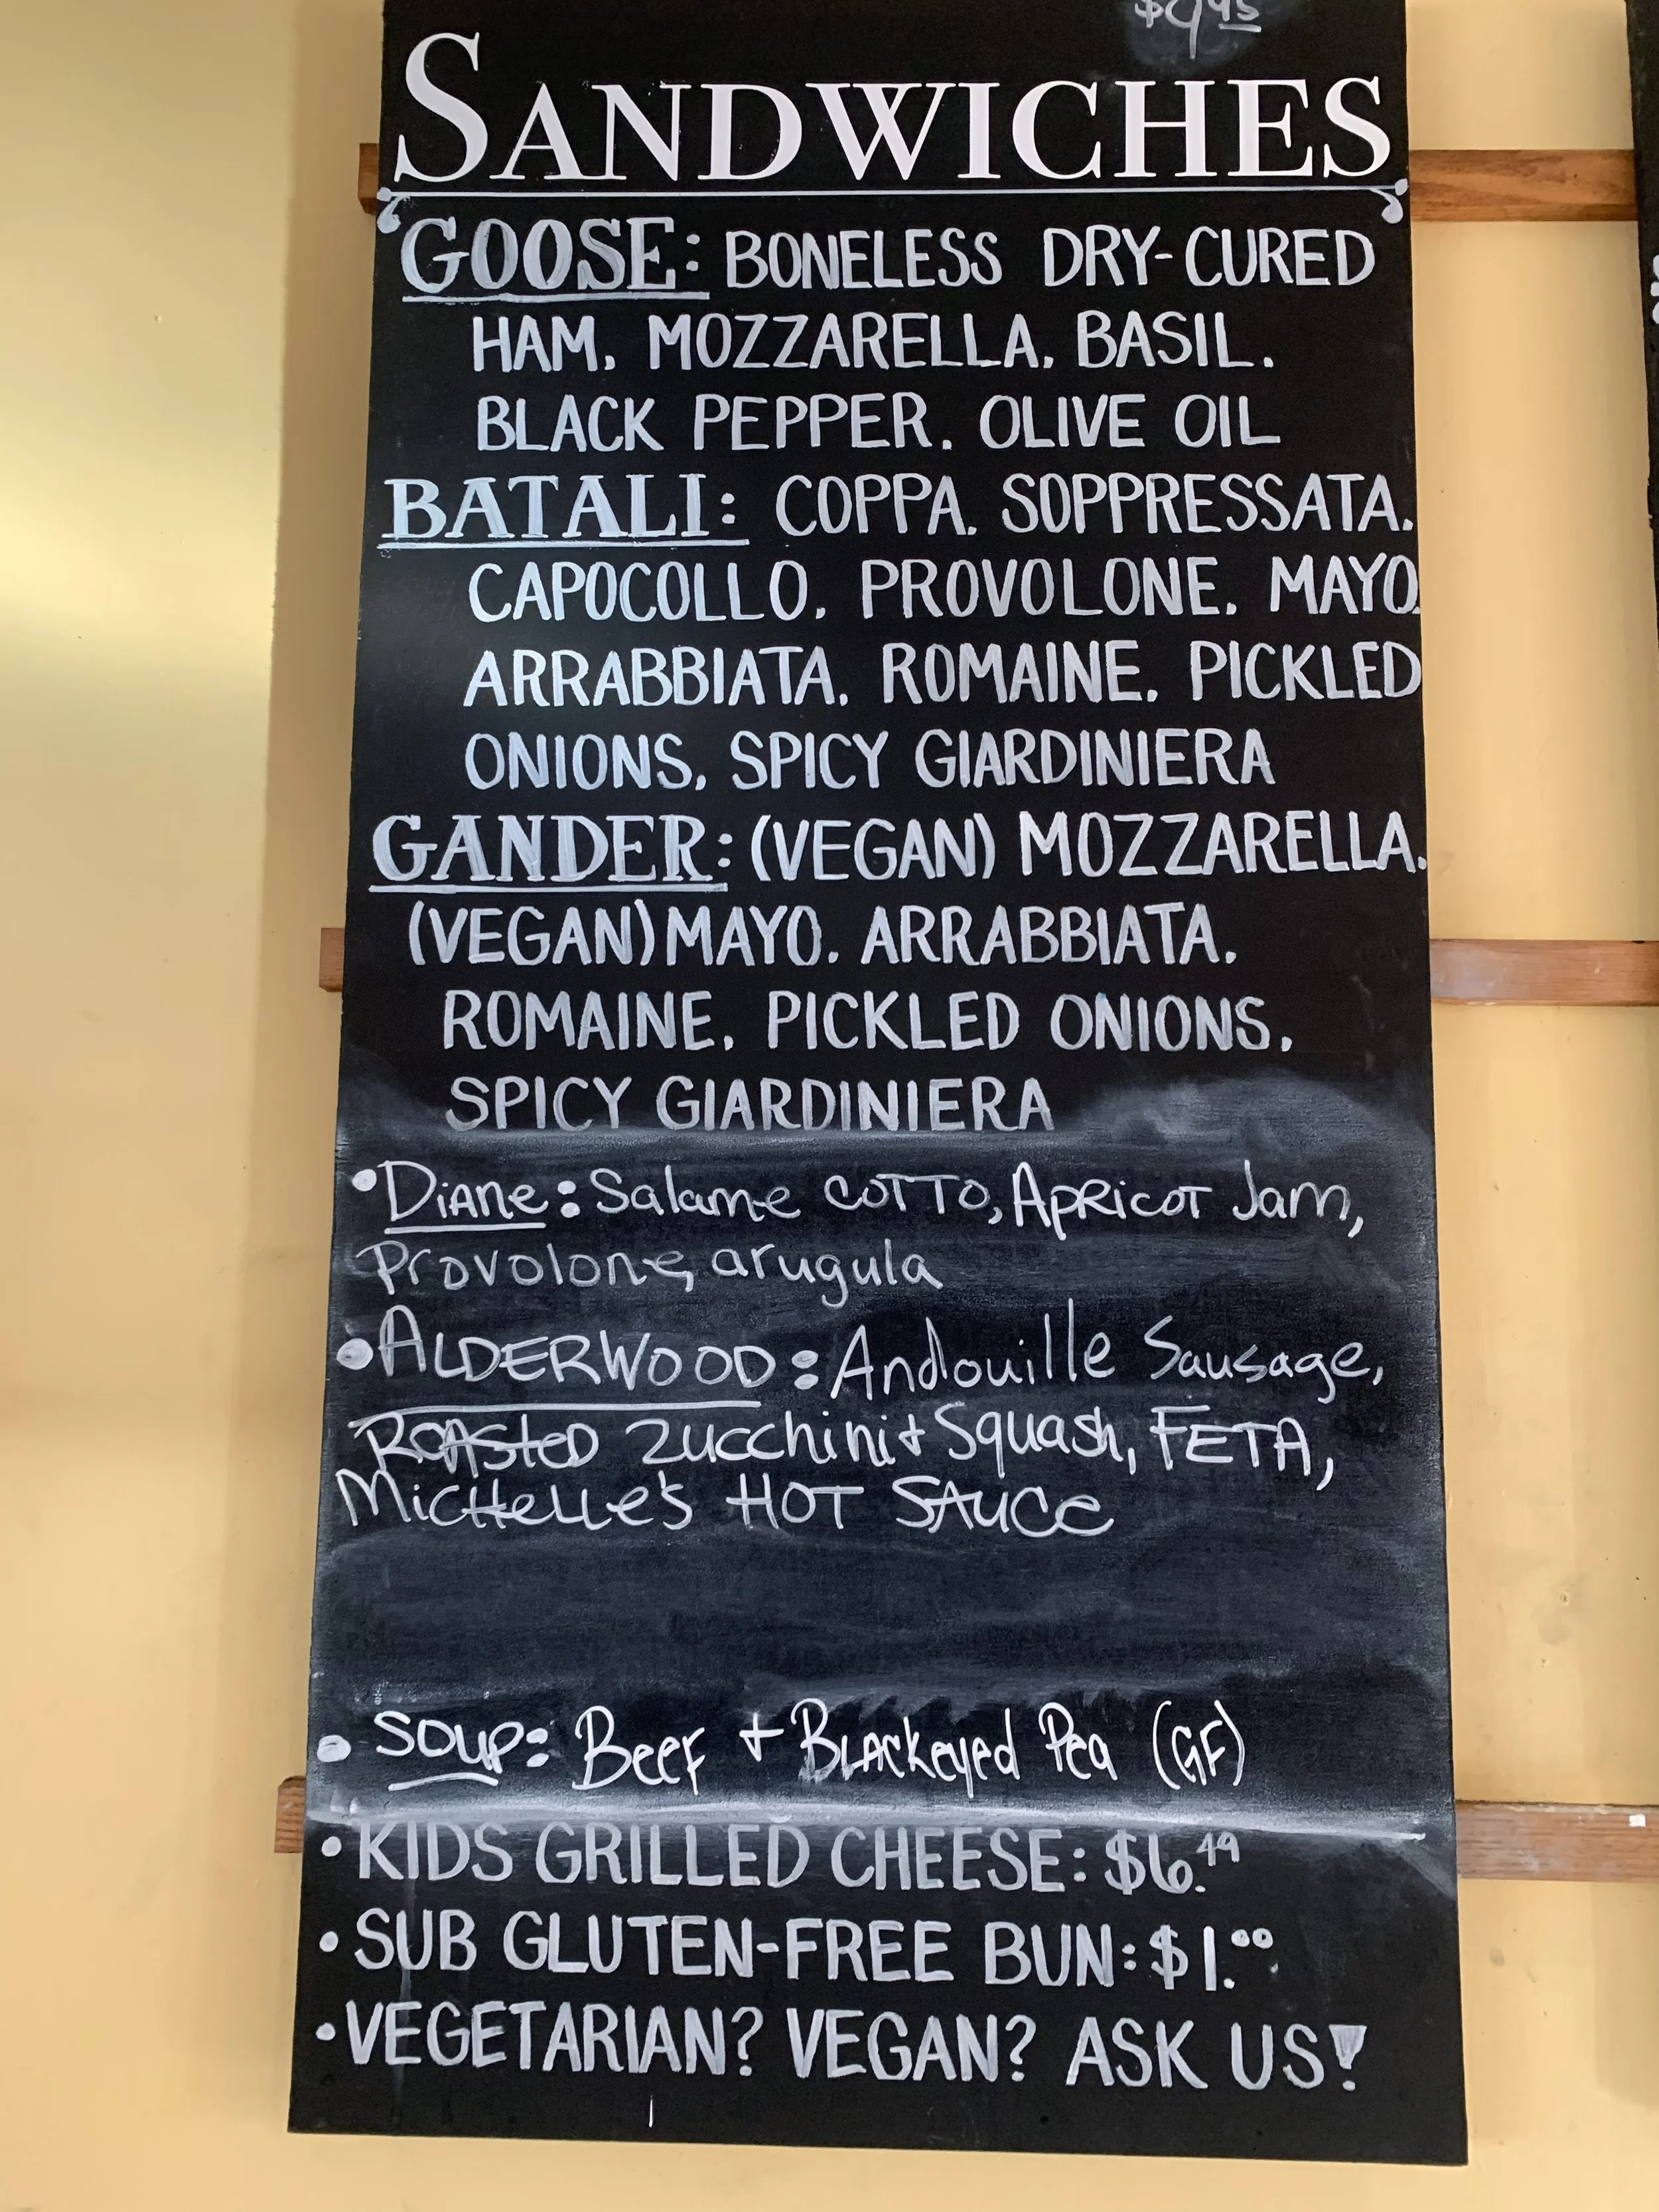 $9.95
SANDWICHES
GOOSE: BONELESS DRY-CURED
HAM, MOZZARELLA, BASIL,
BLACK PEPPER, OLIVE OIL
BATALI: COPPA, SOPPRESSATA,
CAPOCOLLO, PROVOLONE, MAYO,
ARRABBIATA, ROMAINE, PICKLED
ONIONS, SPICY GIARDINIERA
GANDER: (VEGAN) MOZZARELLA,
(VEGAN) MAYO, ARRABBIATA,
ROMAINE, PICKLED ONIONS,
SPICY GIARDINIERA
• Diane: Salame COTTO, Apricot Jam,
Provolone, arugula
• ALDERWOOD: Andouille Sausage,
ROASTED Zucchini + Squash, FETA,
Michelle's HOT SAUCE
• SOUP: Beef + Blackeyed Pea (GF)
• KIDS GRILLED CHEESE: $6.49
• SUB GLUTEN-FREE BUN: $1.00
• VEGETARIAN? VEGAN? ASK US!